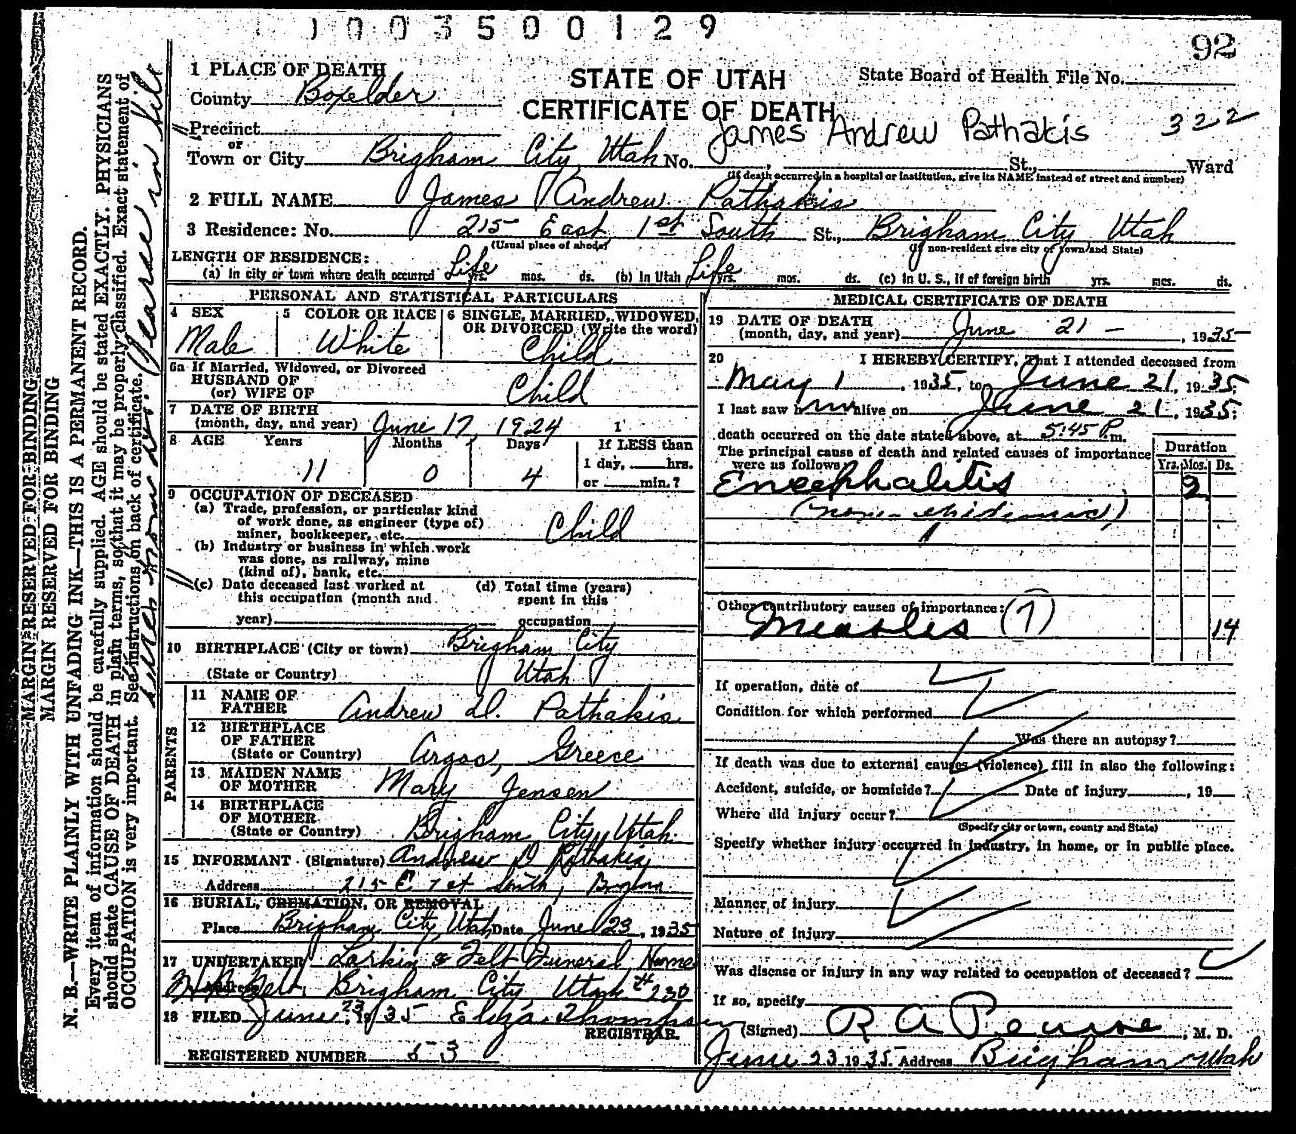 1003500129
92
1 PLACE OF DEATH
STATE OF UTAH
State Board of Health File No.
County Boxelder
CERTIFICATE OF DEATH
James Andrew Pathakis 322
Precinct
or
Town or City Brigham City Utah No. St., Ward
(If death occurred in a hospital or institution, give its NAME instead of street and number)
2 FULL NAME James Andrew Pathakis
3 Residence: No. 215 East 1st South St., Brigham City Utah
(Usual place of abode) (If non-resident give city or town and State)
LENGTH OF RESIDENCE:
(a) In city or town where death occurred Life yrs. mos. ds. (b) In Utah Life yrs. mos. ds. (c) In U. S., if of foreign birth yrs. mos. ds.
PERSONAL AND STATISTICAL PARTICULARS
4 SEX Male
5 COLOR OR RACE White
6 SINGLE, MARRIED, WIDOWED, OR DIVORCED (Write the word) Child
6a If Married, Widowed, or Divorced
HUSBAND OF
(or) WIFE OF Child
7 DATE OF BIRTH
(month, day, and year) June 17, 1924
8 AGE Years Months Days If LESS than
11 0 4 1 day, hrs.
or min.?
9 OCCUPATION OF DECEASED
(a) Trade, profession, or particular kind
of work done, as engineer (type of)
miner, bookkeeper, etc. Child
(b) Industry or business in which work
was done, as railway, mine
(kind of), bank, etc.
(c) Date deceased last worked at
this occupation (month and
year)
(d) Total time (years)
spent in this
occupation
10 BIRTHPLACE (City or town) Brigham City
(State or Country) Utah
PARENTS
11 NAME OF
FATHER Andrew D. Pathakis
12 BIRTHPLACE
OF FATHER
(State or Country) Argos, Greece
13 MAIDEN NAME
OF MOTHER Mary Jensen
14 BIRTHPLACE
OF MOTHER
(State or Country) Brigham City, Utah.
15 INFORMANT (Signature) Andrew D Pathakis
Address 215 E 1st South, Brigham
16 BURIAL, CREMATION, OR REMOVAL
Place Brigham City, Utah Date June 23, 1935
17 UNDERTAKER Larkin & Felt Funeral Home
Brigham City, Utah #230
18 FILED June 23, 1935 Eliza Thompson
REGISTRAR.
REGISTERED NUMBER 53
MEDICAL CERTIFICATE OF DEATH
19 DATE OF DEATH
(month, day, and year) June 21 - , 1935
20 I HEREBY CERTIFY, That I attended deceased from
May 1, 1935, to June 21, 1935.
I last saw him alive on June 21, 1935;
death occurred on the date stated above, at 5:45 P.m.
The principal cause of death and related causes of importance
were as follows:
Duration
Yrs. Mos. Ds.
Encephalitis 2
(non-epidemic)
Other contributory causes of importance:
Measles (7) 14
If operation, date of
Condition for which performed
Was there an autopsy?
If death was due to external causes (violence) fill in also the following:
Accident, suicide, or homicide? Date of injury , 19
Where did injury occur?
(Specify city or town, county and State)
Specify whether injury occurred in industry, in home, or in public place.
Manner of injury
Nature of injury
Was disease or injury in any way related to occupation of deceased?
If so, specify
(Signed) R A Pearse, M. D.
June 23 1935 Address Brigham Utah
MARGIN RESERVED FOR BINDING
MARGIN RESERVED FOR BINDING
N. B.—WRITE PLAINLY WITH UNFADING INK—THIS IS A PERMANENT RECORD.
Every item of information should be carefully supplied. AGE should be stated EXACTLY. PHYSICIANS
should state CAUSE OF DEATH in plain terms, so that it may be properly classified. Exact statement of
OCCUPATION is very important. See instructions on back of certificate.